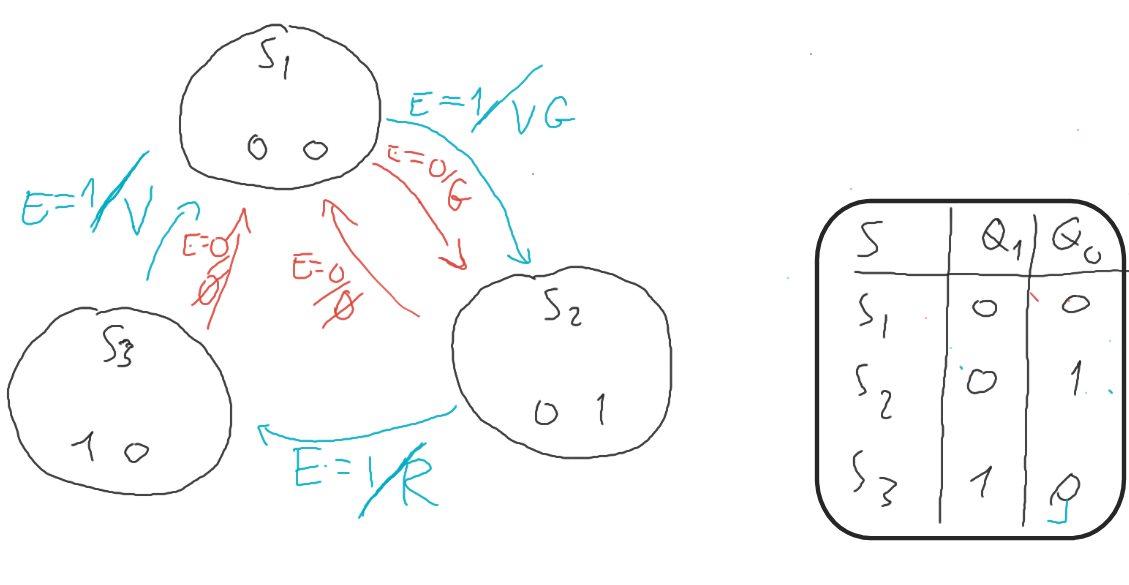 S1
0 0
E=1/VG
E=0/G
E=1/V
E=0/Ø
E=0/Ø
S3
1 0
S2
0 1
E=1/R
S Q1 Q0
S1 0 0
S2 0 1
S3 1 0